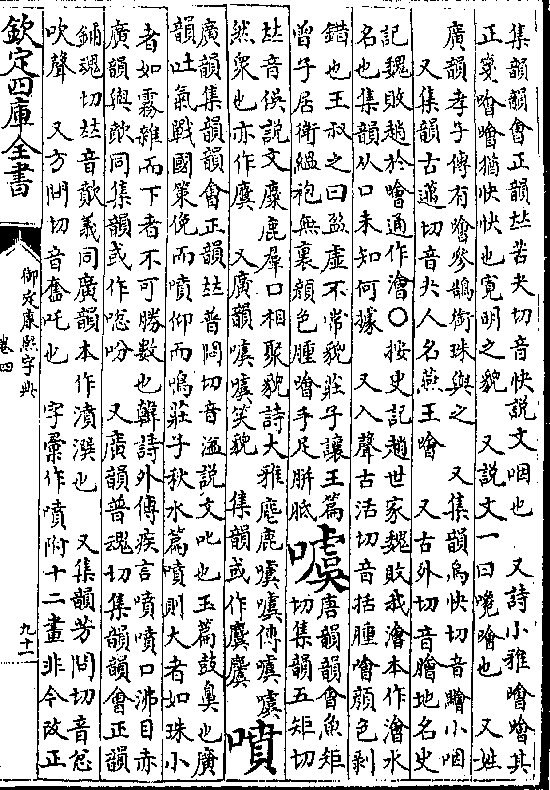 集韻韻會正韻𠀤苦夬切音快說文咽也　又詩小雅噲噲其
正箋噲噲猶快快也寬明之貌　又說文一曰嚵噲也　又姓
廣韻孝子傳有噲參鶴銜珠與之　又集韻烏快切音䵳小咽
又集韻古邁切音夬人名燕王噲　又古外切音膾地名史
記魏敗趙於噲通作澮○按史記趙世家魏敗我澮本作澮水
名也集韻从口未知何據　又入聲古活切音括腫噲顏色剝
錯也王叔之曰盈虛不常貌莊子讓王篇
曾子居衛縕袍無裏顏色腫噲手足胼胝
噳
唐韻韻會魚矩
切集韻五矩切
𠀤音俁說文麋鹿羣口相聚貌詩大雅麀鹿噳噳傳噳噳
然衆也亦作麌　又廣韻噳噳笑貌　集韻或作麌䴥
噴
廣韻集韻韻會正韻𠀤普悶切音湓說文吒也玉篇鼓鼻也廣
韻吐氣戰國策俛而噴仰而鳴莊子秋水篇噴則大者如珠小
者如霧雜而下者不可勝數也韓詩外傳疾言噴噴口沸目赤
廣韻與歕同集韻或作㖹吩　又廣韻普魂切集韻韻會正韻
鋪魂切𠀤音歕義同廣韻本作濆潠也　又集韻芳問切音忿
吹聲　又方問切音奮吒也　字彙作噴附十二畫非今改正
欽定四庫全書
御定康熙字典
卷四
九十一